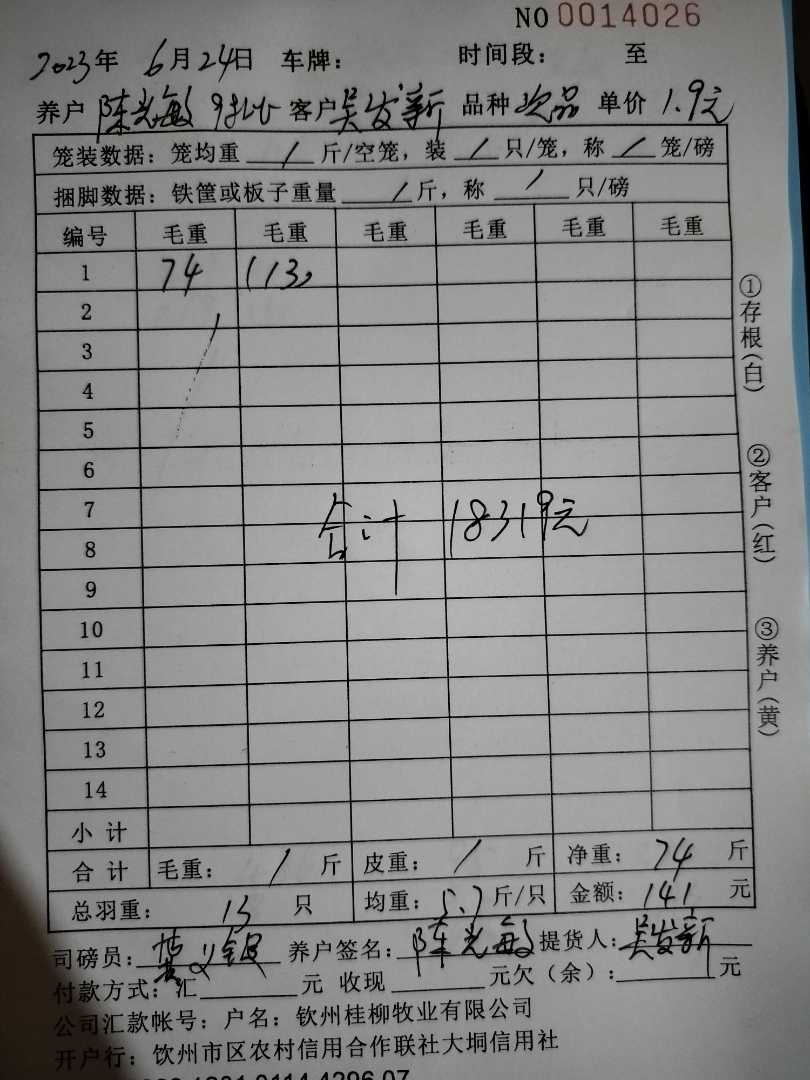 NO 0014026
2023年 6月24日 车牌： 时间段： 至
养户 陈光敏 客户 吴发新 品种 次品 单价 1.9元
笼装数据：笼均重 / 斤/空笼，装 / 只/笼，称 / 笼/磅
捆脚数据：铁筐或板子重量 / 斤，称 / 只/磅
编号 毛重 毛重 毛重 毛重 毛重 毛重
1 74 (13)
2
3
4
5
6
7
8
合计 18319元
9
10
11
12
13
14
小计
合计 毛重： / 斤 皮重： / 斤 净重： 74 斤
总羽重： 13 只 均重： 5.7 斤/只 金额： 141 元
司磅员： 养户签名： 陈光敏 提货人： 吴发新
付款方式：汇 元 收现 元欠（余）： 元
公司汇款帐号：户名：钦州桂柳牧业有限公司
开户行：饮州市区农村信用合作联社大垌信用社
①存根（白）
②客户（红）
③养户（黄）